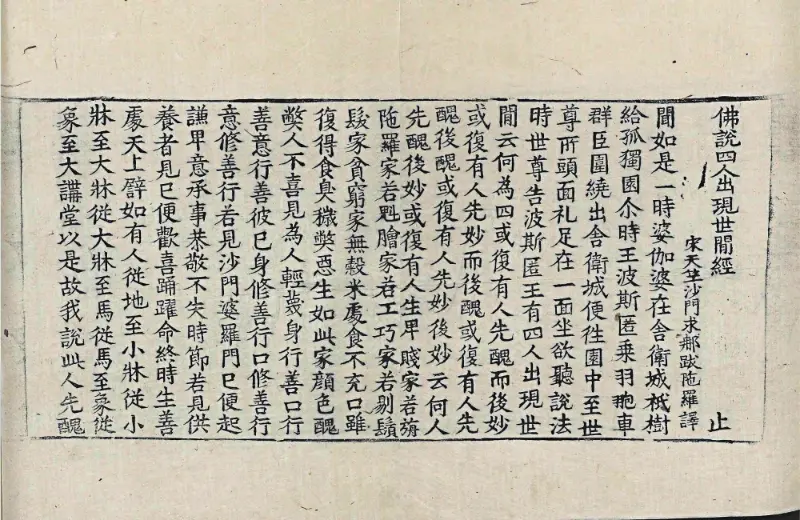 佛說四人出現世間經 止
宋天竺沙門求那跋陁羅譯
聞如是一時婆伽婆在舍衛城祇樹
給孤獨園尒時王波斯匿乘羽葆車
群臣圍繞出舍衛城便往園中至世
尊所頭面礼足在一面坐欲聽說法
時世尊告波斯匿王有四人出現世
間云何為四或復有人先醜而後妙
或復有人先妙而後醜或復有人先
醜後醜或復有人先妙後妙云何人
先醜後妙或復有人生卑賤家若旃
陁羅家若魁膾家若工巧家若剔鬚
髮家貧窮家無穀米處食不充口雖
復得食臭穢弊惡生如此家顏色醜
弊人不喜見為人輕蔑身行善口行
善意行善彼已身修善行口修善行
意修善行若見沙門婆羅門已便起
謙卑意承事恭敬不失時節若見供
養者見已便歡喜踊躍命終時生善
處天上譬如有人從地至小牀從小
牀至大牀從大牀至馬從馬至象從
象至大講堂以是故我說此人先醜